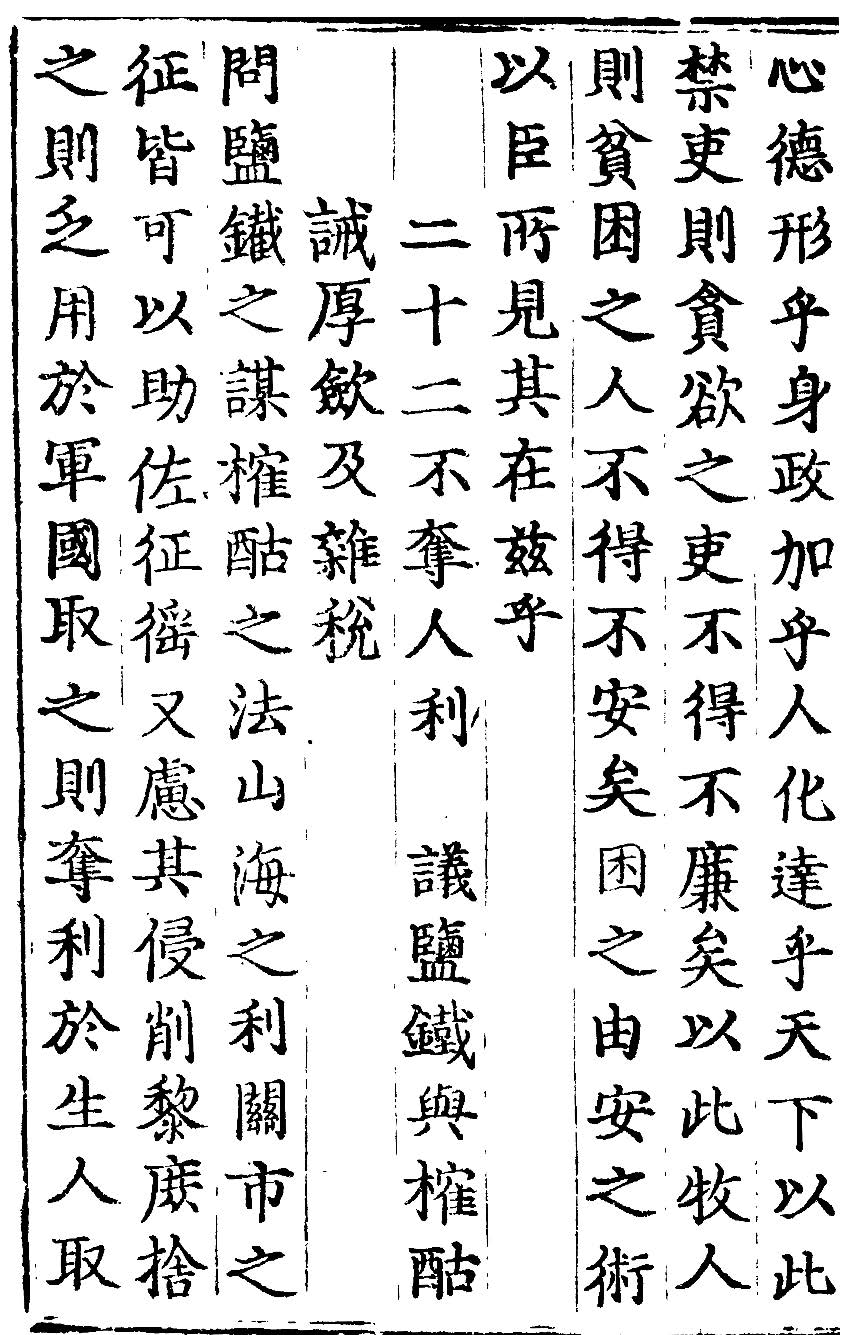 心德形乎身政加乎人化達乎天下以此
禁吏則貪欲之吏不得不廉矣以此牧人
則貧困之人不得不安矣困之由安之術
以臣所見其在兹乎
二十二不奪人利　議鹽鐵與榷酤
誡厚斂及雜稅
問鹽鐵之謀榷酤之法山海之利關市之
征皆可以助佐征徭又慮其侵削黎庶捨
之則乏用於軍國取之則奪利於生人取